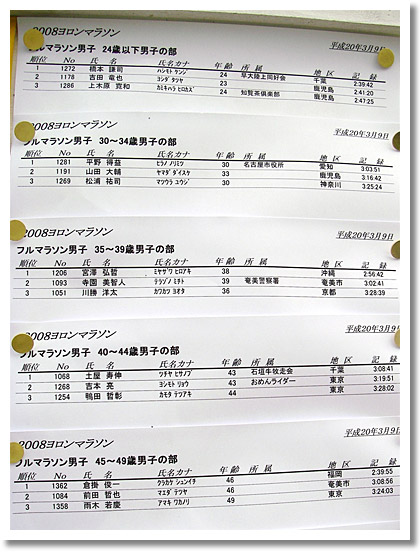 2008ヨロンマラソン 平成20年3月9日
フルマラソン男子 24歳以下男子の部
順位 No 氏 名 氏名カナ 年齢 所 属 地 区 記 録
1 1272 橋本 謙司 ハシモト ケンジ 24 早大陸上同好会 千葉 2:39:42
2 1178 吉田 竜也 ヨシダ タツヤ 23 鹿児島 2:41:20
3 1286 上木原 寛和 カミキハラ ヒロカズ 24 知覧茶倶楽部 鹿児島 2:47:25
2008ヨロンマラソン 平成20年3月9日
フルマラソン男子 30～34歳男子の部
順位 No 氏 名 氏名カナ 年齢 所 属 地 区 記 録
1 1281 平野 得益 ヒラノ ノリミツ 30 名古屋市役所 愛知 3:03:51
2 1191 山田 大輔 ヤマダ ダイスケ 33 鹿児島 3:16:42
3 1269 松浦 祐司 マツウラ ユウジ 30 神奈川 3:25:24
2008ヨロンマラソン 平成20年3月9日
フルマラソン男子 35～39歳男子の部
順位 No 氏 名 氏名カナ 年齢 所 属 地 区 記 録
1 1206 宮澤 弘哲 ミヤザワ ヒロアキ 38 沖縄 2:56:42
2 1093 寺園 美智人 テラゾノ ミチト 39 奄美警察署 奄美市 3:02:41
3 1051 川勝 洋太 カワカツ ヨオタ 36 京都 3:28:39
2008ヨロンマラソン 平成20年3月9日
フルマラソン男子 40～44歳男子の部
順位 No 氏 名 氏名カナ 年齢 所 属 地 区 記 録
1 1068 土屋 寿伸 ツチヤ ヒサノブ 43 石垣牛牧走会 千葉 3:08:41
2 1268 吉本 亮 ヨシモト リョウ 43 おめんライダー 東京 3:19:51
3 1254 鴨田 哲彰 カモタ テツアキ 44 東京 3:28:02
2008ヨロンマラソン 平成20年3月9日
フルマラソン男子 45～49歳男子の部
順位 No 氏 名 氏名カナ 年齢 所 属 地 区 記 録
1 1362 倉掛 俊一 クラカケ シュンイチ 46 福岡 2:39:55
2 1084 前田 哲也 マエダ テツヤ 46 奄美市 3:08:56
3 1358 雨木 若慶 アマキ ワカノリ 49 東京 3:24:03